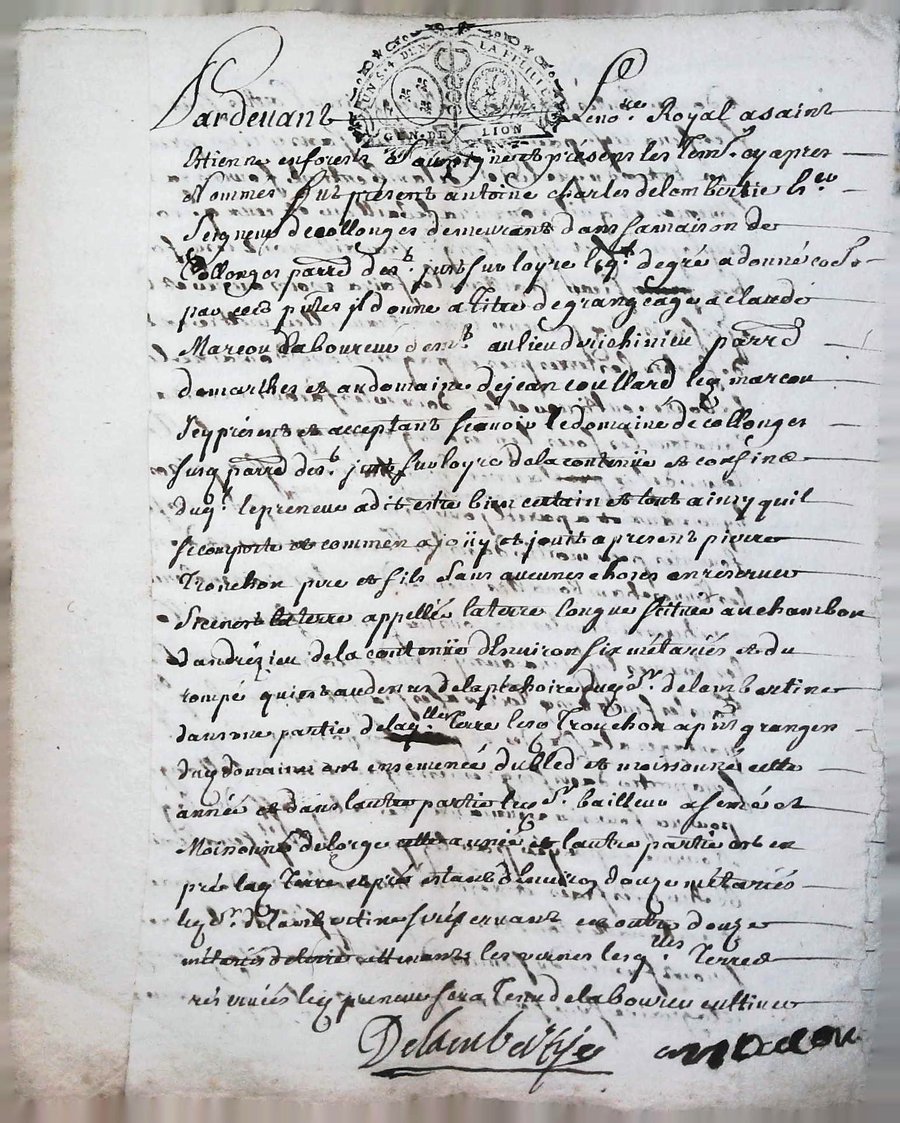 UN S. 4 DEN. LA FEUILLE
GEN. DE LION
Pardevant Le no.re Royal a saint
Etienne en forest Soussigné et présens les Tem. cy apres
Nommés fut présent antoine charles delambertie
Seigneur de collonges demeurant dans sa maison de
Collonges parr. de s.t just sur loyre leq.l de gré a donné co
par ces p.ntes il donne a Titre de grangeage a claude
Marcou Laboureur dem.t au lieu de parr
de marthes et au domaine de jean coullard leq marcou
Icy présent et acceptant scavoir le domaine de collonges
susq parr de s.t just sur loyre de la contenüe et confins
duq.l le preneur a dit estre bien certain et tout ainsy quil
se comporte et comme en a joüy et jouit a present pierre
Tronchon pre et fils Sans aucunes choses en reserver
Si ce n'est la terre appellée la terre longue Scituée au chambon
dandrézieu de la contenüe d'Environ six métariés et du
rompé qui est au dessus de la du S.r delambertine
dans une partie de laq.lle Terre lesq Tronchon a p.nt grangers
duq domaine ont ensemencé du bled et moissonné cette
année et dans lautre partie leq S.r bailleur a semé et
Moissonné de lorge cette année et lautre partie est en
pré laq Terre et pré estant d'Environ douze métariés
leq S.r delambertine se réservant en outre douze
métariés de terre attenants les vernes lesq.lles Terres
réservées leq preneur sera Tenu de labourer cultiver
Delambertije marcou